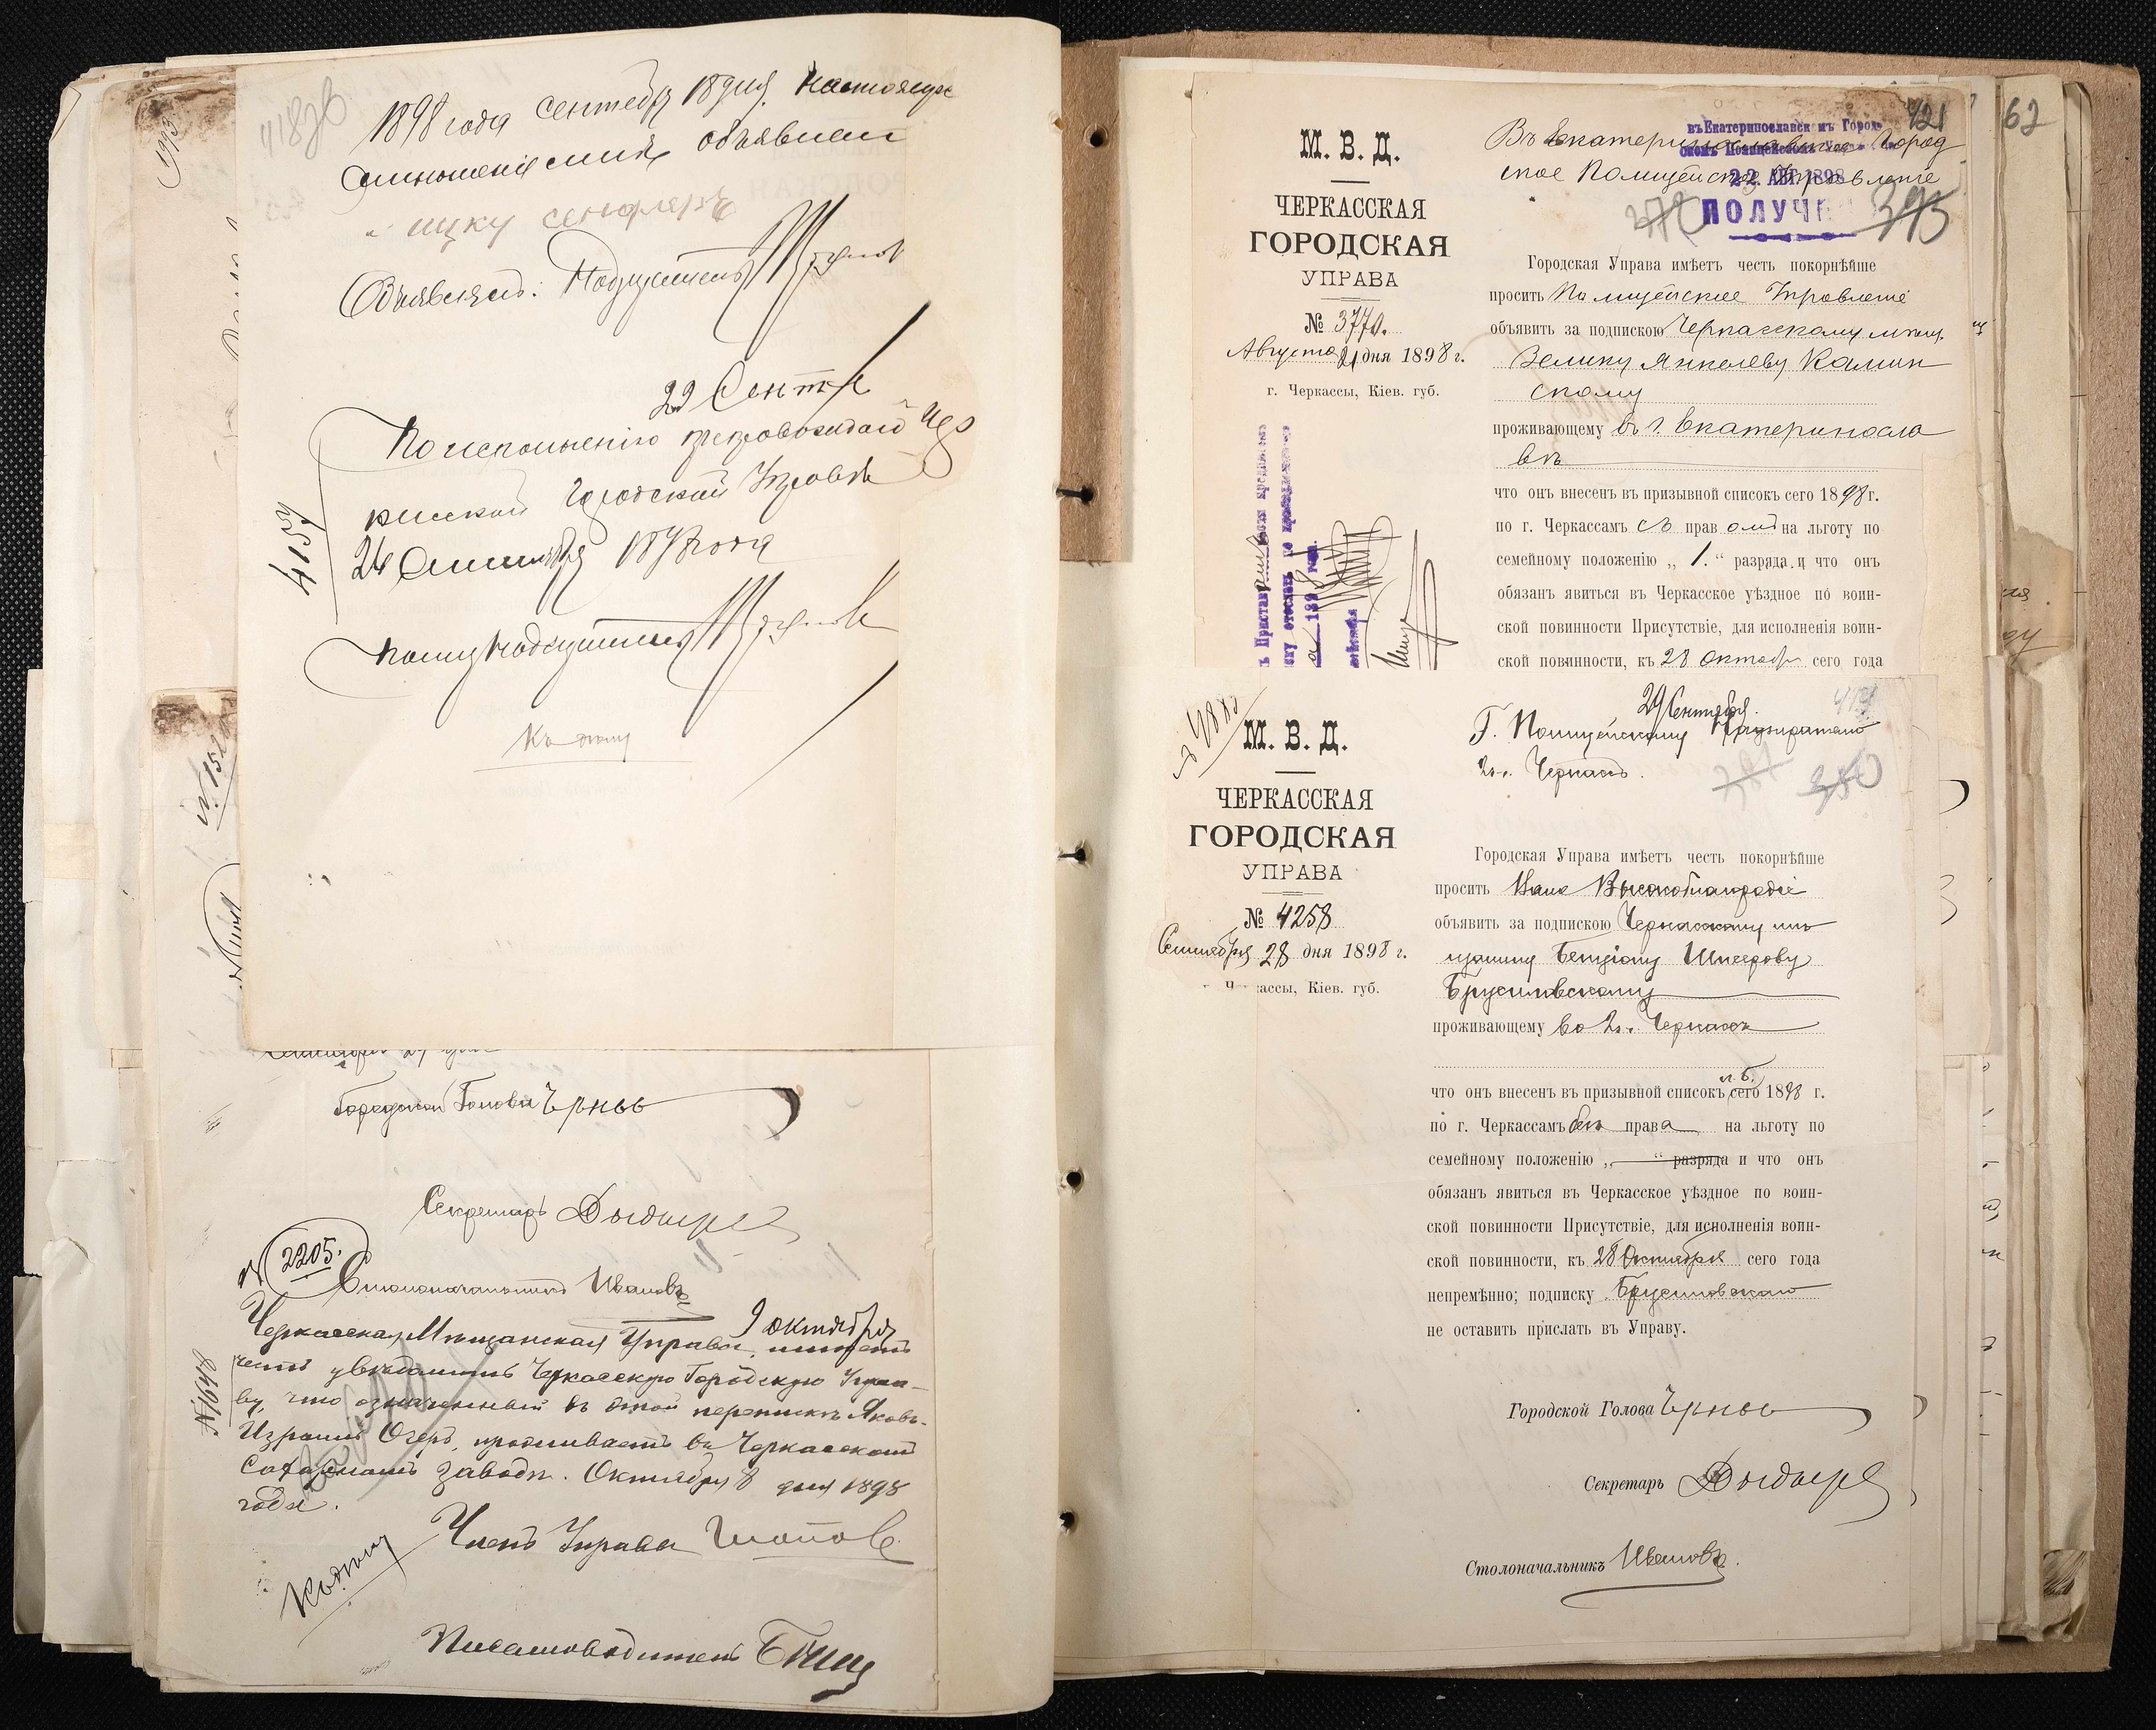 1898 года сентября 18 дня. Настоящее
отношение мнѣ объявлено
Объявилъ: Надзиратель
22 Сент
По исполненію препровождаю Чер
касской Городской Управѣ
24 Сентября 1898 года
4159
Полиц Надзиратель
Къ дѣлу
Городской Голова Чрнов
Секретарь
№ 2205.
Столоначальникъ Ивановъ
9 октября
№ 1648
Черкасская Мѣщанская Управа, имѣетъ
честь увѣдомить Черкасскую Городскую Упра-
ву, что означенный въ этой перепискѣ Яковъ-
Израиль Озеръ, проживаетъ въ Черкасскомъ
Сахарномъ заводѣ. Октября 8 дня 1898
года.
Къ дѣлу
Членъ Управы
Письмоводитель
421
62
М. В. Д.
ЧЕРКАССКАЯ
ГОРОДСКАЯ
УПРАВА
№ 3770.
Августа 21 дня 1898 г.
г. Черкассы, Кіев. губ.
Въ Екатеринославское Город
ское Полицейское Управленіе
22 АВГ 1898
ПОЛУЧ
395
Городская Управа имѣетъ честь покорнѣйше
просить Полицейское Управленіе
объявить за подпискою Черкасскому мѣщ.
Зелику Янкелеву Камин
скому
проживающему въ г. Екатериносла
вѣ
что онъ внесенъ въ призывной списокъ сего 1898 г.
по г. Черкассамъ съ правомъ на льготу по
семейному положенію „ 1. “ разряда и что онъ
обязанъ явиться въ Черкасское уѣздное по воин-
ской повинности Присутствіе, для исполненія воин-
ской повинности, къ 28 Октябр сего года
М. В. Д.
ЧЕРКАССКАЯ
ГОРОДСКАЯ
УПРАВА
№ 4258
Сентября 28 дня 1898 г.
ассы, Кіев. губ.
29 Сентября.
Г. Полицейскому Надзирателю
2 ч. Черкассъ.
380
Городская Управа имѣетъ честь покорнѣйше
просить Ваше Высокоблагородіе
объявить за подпискою Черкасскому мѣ
щанину Бенціону Шнеерову
Брусиловскому
проживающему во 2 ч. Черкассъ
что онъ внесенъ въ призывной списокъ сего 1898 г.
по г. Черкассамъ безъ права на льготу по
семейному положенію „ “ разряда и что онъ
обязанъ явиться въ Черкасское уѣздное по воин-
ской повинности Присутствіе, для исполненія воин-
ской повинности, къ 28 Октября сего года
непремѣнно; подписку Брусиловскаго
не оставить прислать въ Управу.
Городской Голова Чрнов
Секретарь
Столоначальникъ Ивановъ.